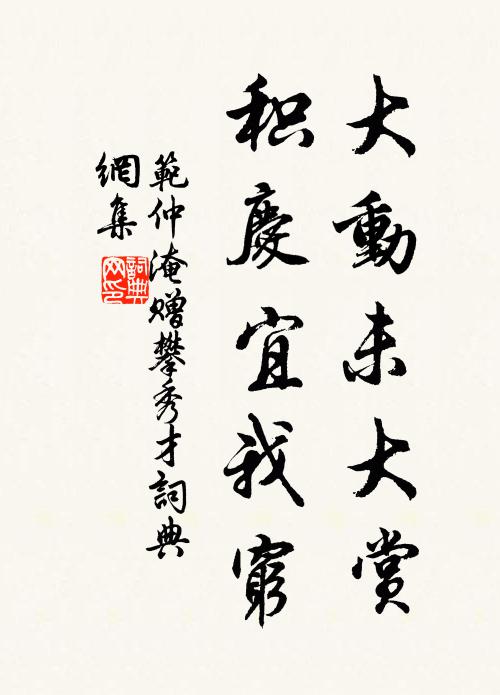 大動未大賞
积慶宜我窮
範仲淹贈攀秀才詞典
網集
詞典
网印